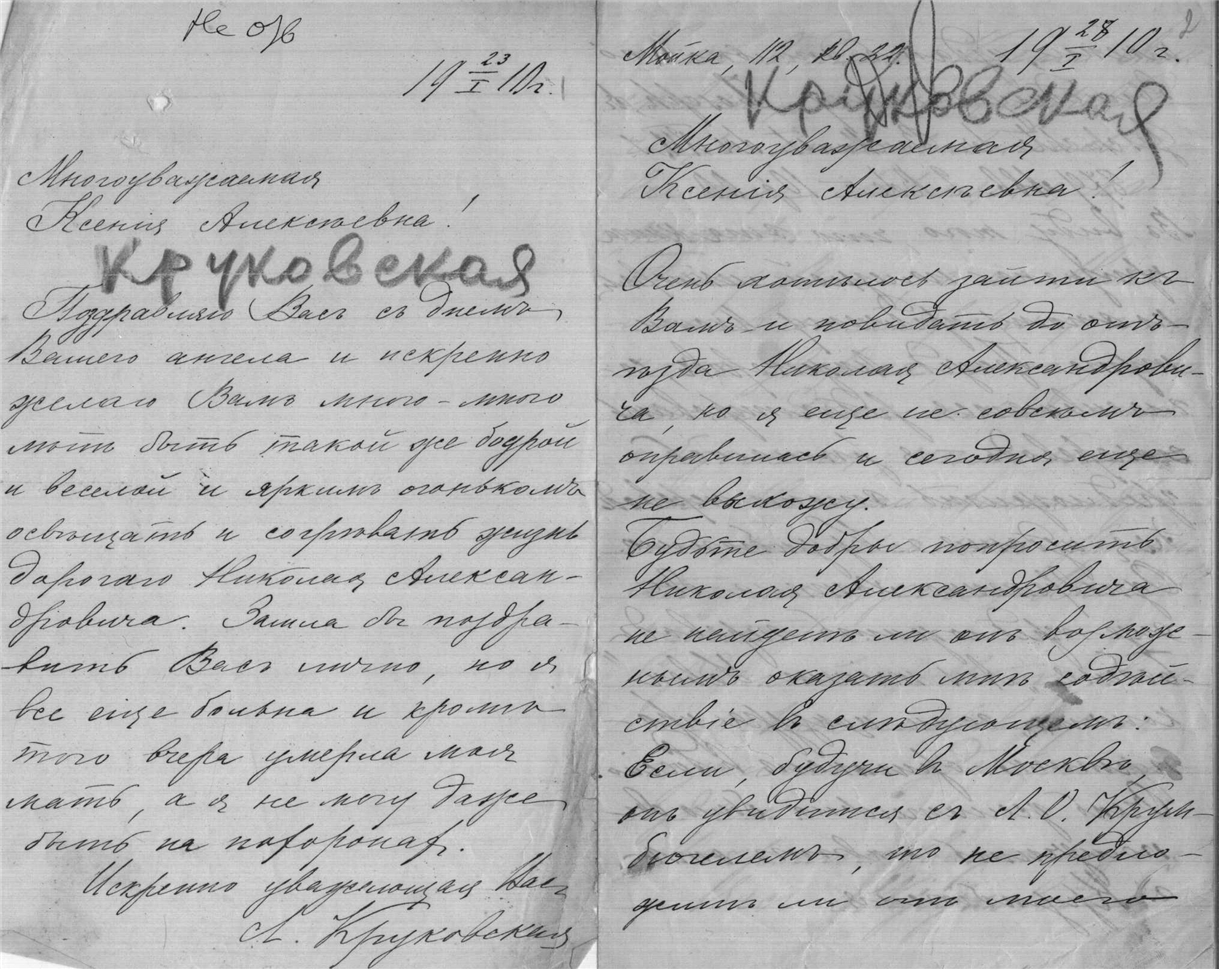 Не отв
19 23/I 10 г.
Многоуважаемая
Ксенія Алексѣевна!
Круковская
Поздравляю Васъ съ днемъ
Вашего ангела и искренно
желаю Вамъ много-много
лѣтъ быть такой же бодрой
и веселой и яркимъ огонькомъ
освѣщать и согрѣвать жизнь
дорогаго Николая Алексан-
дровича. Зашла бы поздра-
вить Васъ лично, но я
все еще больна и кромѣ
того вчера умерла моя
мать, а я не могу даже
быть на похоронах.
Искренно уважающая Вас
Л. Круковская
Мойка, 112, кв. 22. 19 28/I 10 г.
Круковская
Многоуважаемая
Ксенія Алексѣевна!
Очень хотѣлось зайти къ
Вамъ и повидать до отъ-
ѣзда Николая Александрови-
ча, но я еще не совсѣмъ
оправилась и сегодня еще
не выхожу.
Будьте добры попросить
Николая Александровича
не найдетъ ли онъ возмож-
нымъ оказать мнѣ содѣй-
ствіе въ слѣдующемъ:
Если, будучи въ Москвѣ,
онъ увидится съ Л. О. Крум-
бюгелемъ, то не предло-
житъ ли онъ моего